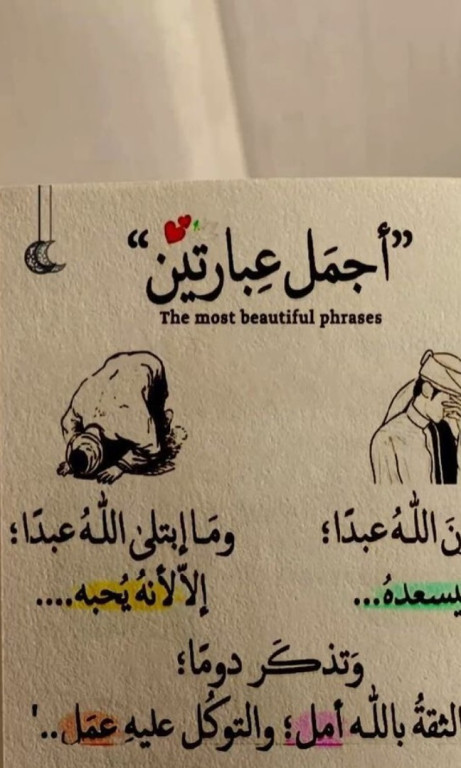 ”أجمَل عِبارتين“
The most beautiful phrases
نَ اللّٰهُ عبدًا؛
يسعدهُ...
ومَا إبتلىٰ اللّٰهُ عبدًا؛
إلاّ لأنهُ يُحبه....
وَتذكَر دومًا؛
لثقةُ باللّٰه أمل؛ والتوكُل عليهِ عمَل..'